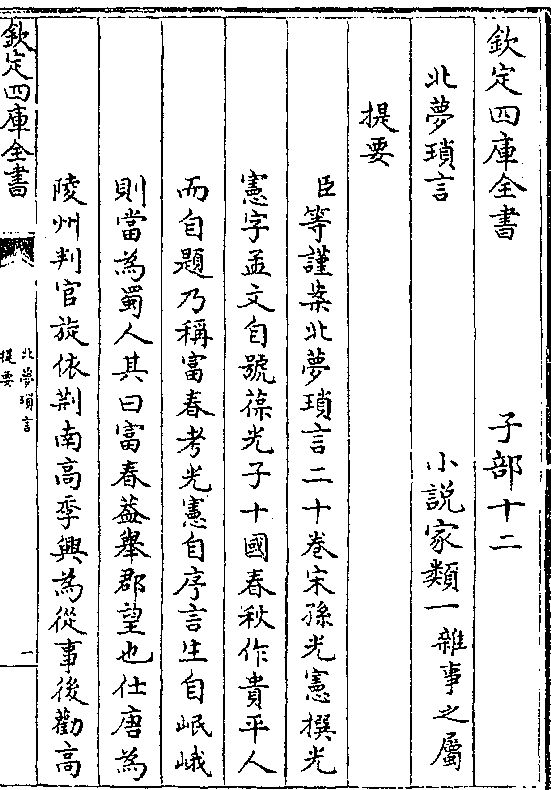 欽定四庫全書　子部十二
北夢瑣言　小説家類一雜事之屬
提要
臣等謹案北夢瑣言二十卷宋孫光憲撰光
憲字孟文自號葆光子十國春秋作貴平人
而自題乃稱富春考光憲自序言生自岷峨
則當為蜀人其曰富春葢舉郡望也仕唐為
陵州判官旋依荆南高季興為從事後勸高
欽定四庫全書
北夢瑣言
提要
一